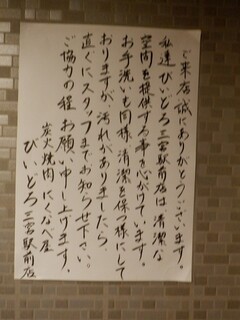 ご来店誠にありがとうございます。
私達びいどろ三宮駅前店は清潔な
空間を提供する事を心がけています。
お手洗いも同様、清潔を保つ様にして
おりますが、汚れがありましたら、
直ぐにスタッフまでお知らせ下さい。
ご協力の程お願い申し上げます。
炭火焼肉にくなべ屋
びいどろ三宮駅前店